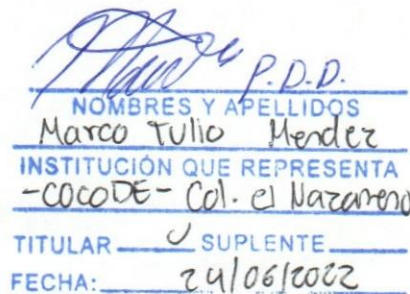 P.D.D.
NOMBRES Y APELLIDOS
Marco Tulio Mendez
INSTITUCIÓN QUE REPRESENTA
-COCODE- Col. el Nazareno
TITULAR SUPLENTE
FECHA: 24/06/2022